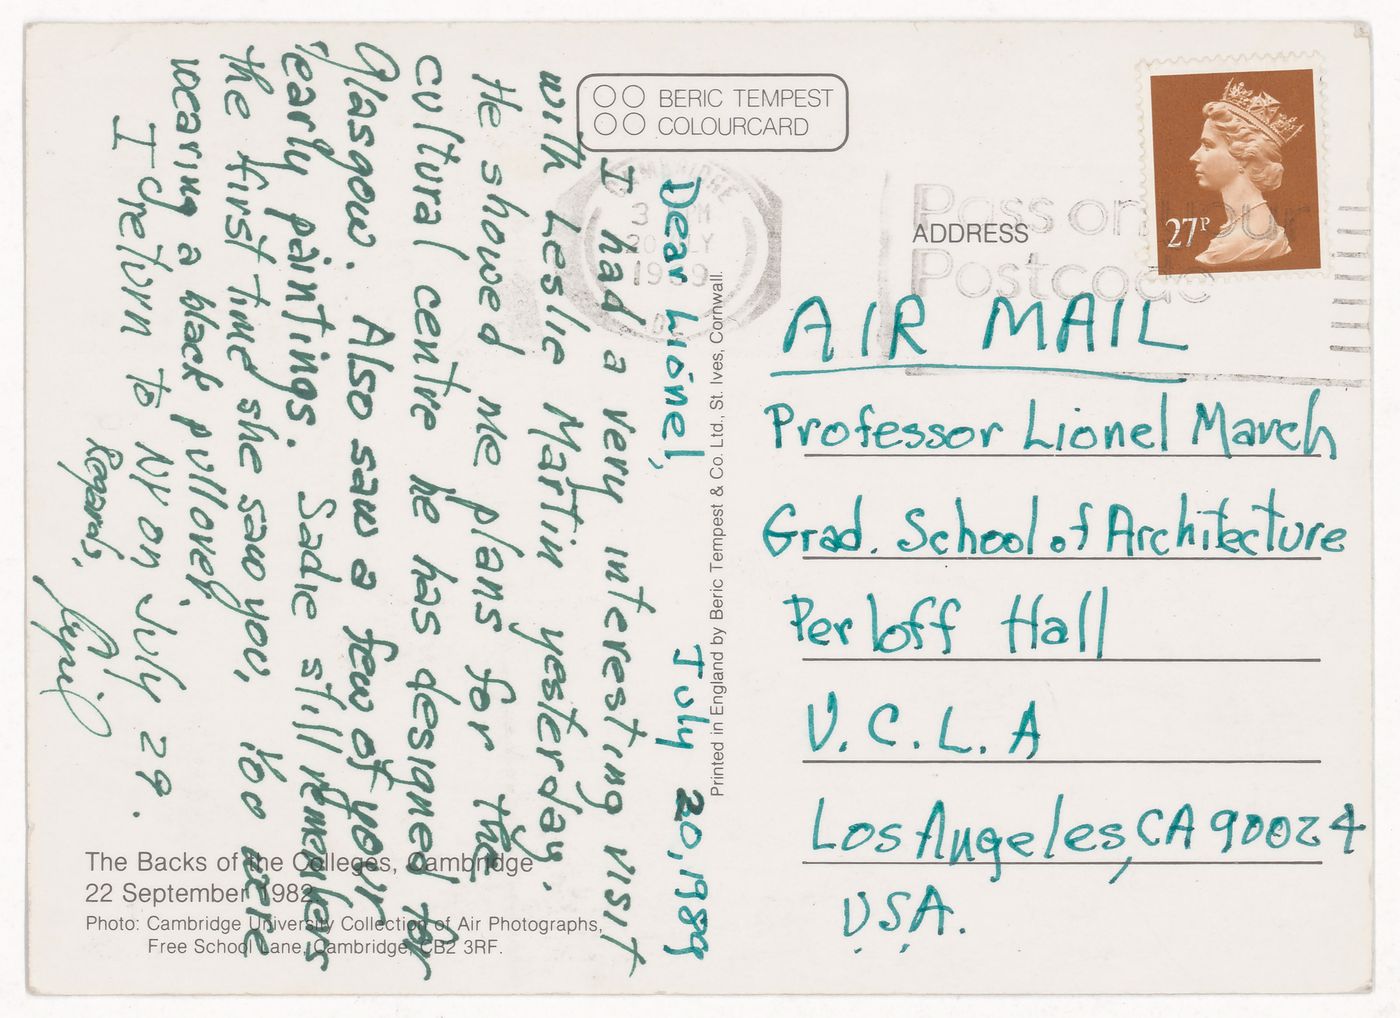 BERIC TEMPEST
COLOURCARD
July 20, 1989
Dear Lionel,
I had a very interesting visit
with Leslie Martin yesterday.
He showed me plans for the
cultural centre he has designed for
Glasgow. Also saw a few of your
early paintings. Sadie still remembers
the first time she saw you, Yoo were
wearing a black pullover.
I return to NY on July 29.
Regards,
The Backs of the Colleges, Cambridge
22 September 1982.
Photo: Cambridge University Collection of Air Photographs,
Free School Lane, Cambridge, CB2 3RF.
Printed in England by Beric Tempest & Co. Ltd., St. Ives, Cornwall.
20 JLY
1989
Pass on Your
Postcode
27P
ADDRESS
AIR MAIL
Professor Lionel March
Grad. School of Architecture
Perloff Hall
U.C.L.A
Los Angeles, CA 90024
USA.